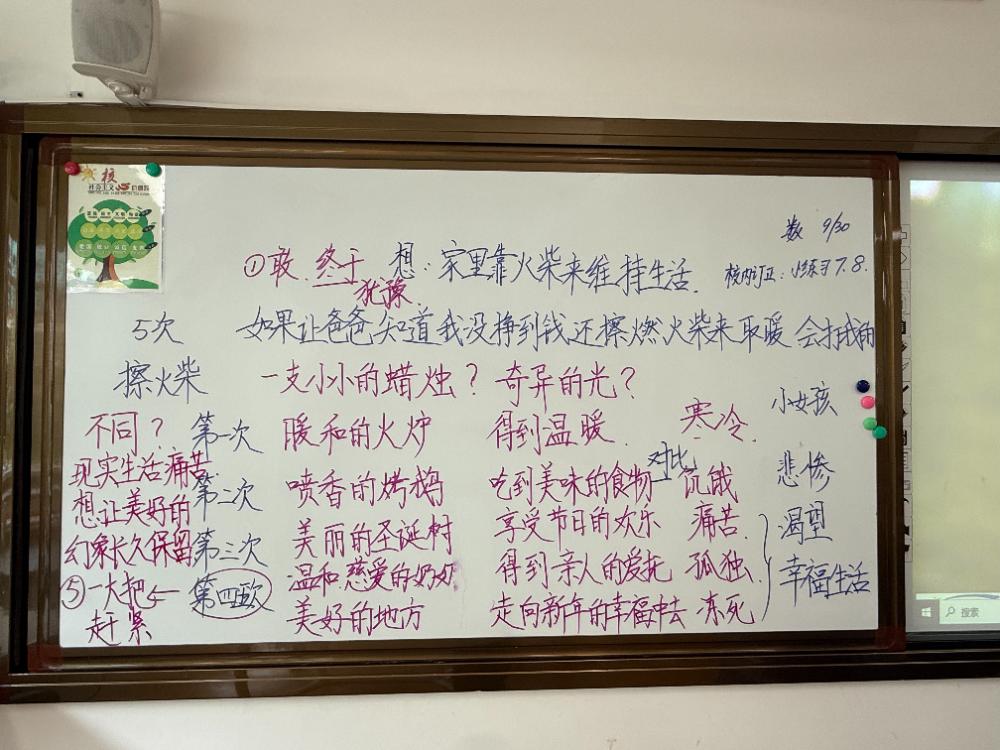 核
社会主义 价值观
数 9/30
①敢 终于 想：家里靠火柴来维持生活
犹豫
校内订正：小练习7.8.
5次
如果让爸爸知道我没挣到钱还擦燃火柴来取暖会打我的
擦火柴
一支小小的蜡烛？ 奇异的光？
小女孩
不同？ 第一次 暖和的火炉 得到温暖 寒冷
现实生活痛苦
对比
第二次 喷香的烤鹅 吃到美味的食物 饥饿
悲惨
想让美好的
幻象长久保留
第三次 美丽的圣诞树 享受节日的欢乐 痛苦
渴望
⑤一大把← 第四次 温和 慈爱的奶奶 得到亲人的爱抚 孤独
幸福生活
赶紧
美好的地方 走向新年的幸福中去 冻死
搜索